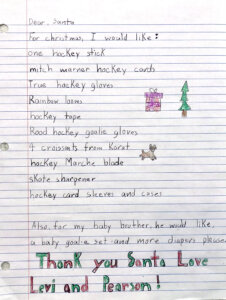 Dear, Santa
For christmas, I would like:
one hockey stick
mitch marner hockey cards
True hockey gloves
Rainbow looms
hockey tape
Road hockey goalie gloves
4 croissants from
hockey Marche blade
skate sharpener
hockey card sleeves and cases
Also, for my baby brother, he would like,
a baby goalie set and more diapers please
Thank you Santa Love
Levi and Pearson!